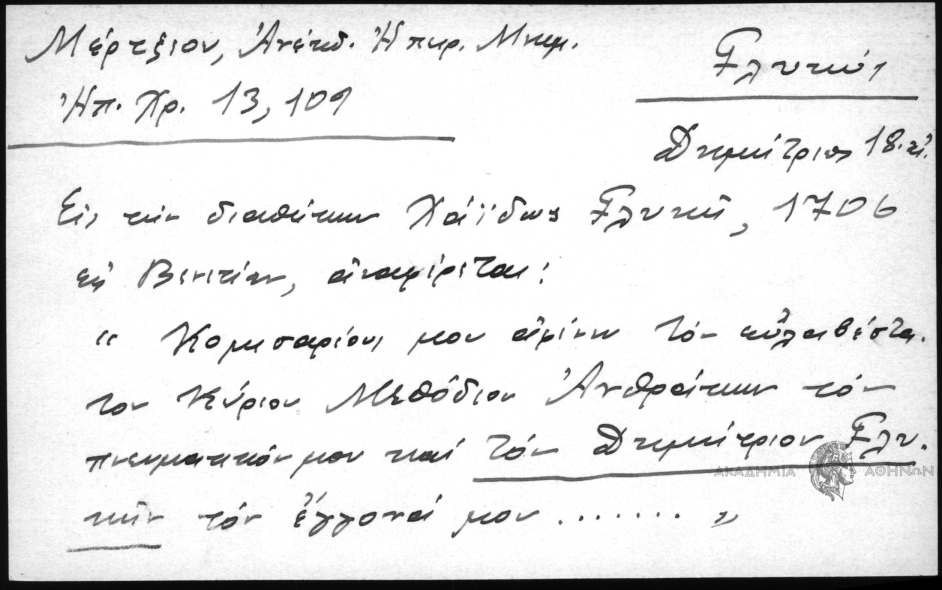 Μέρτζιον, Ἀνέκδ. Ἠπειρ. Μνημ.
Ἠπ. Χρ. 13, 109
Γλυκύς
Δημήτριος 18. αἰ.
Εἰς τὴν διαθήκην Χάϊδως Γλυκῆ, 1706
εἰς Βενετίαν, ἀναφέρεται:
“ Κομεσαρίους μου ἀφίνω τὸν εὐλαβέστα-
τον Κύριον Μεθόδιον Ἀνθρακίτην τὸν
πνευματικόν μου καὶ τὸν Δημήτριον Γλυ-
κὴν τὸν ἔγγονά μου ........ „
ΑΚΑΔΗΜΙΑ ΑΘΗΝΩΝ